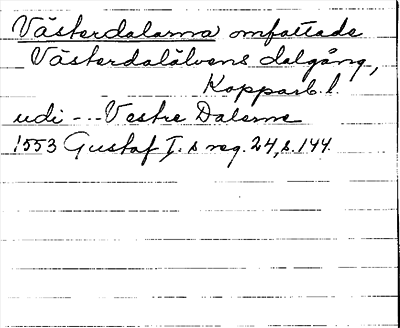 Västerdalarna omfattade
Västerdalälvens dalgång,
Kopparb. l.
udi --- Vestre Dalerne
1553 Gustaf I. s reg. 24, s. 144.